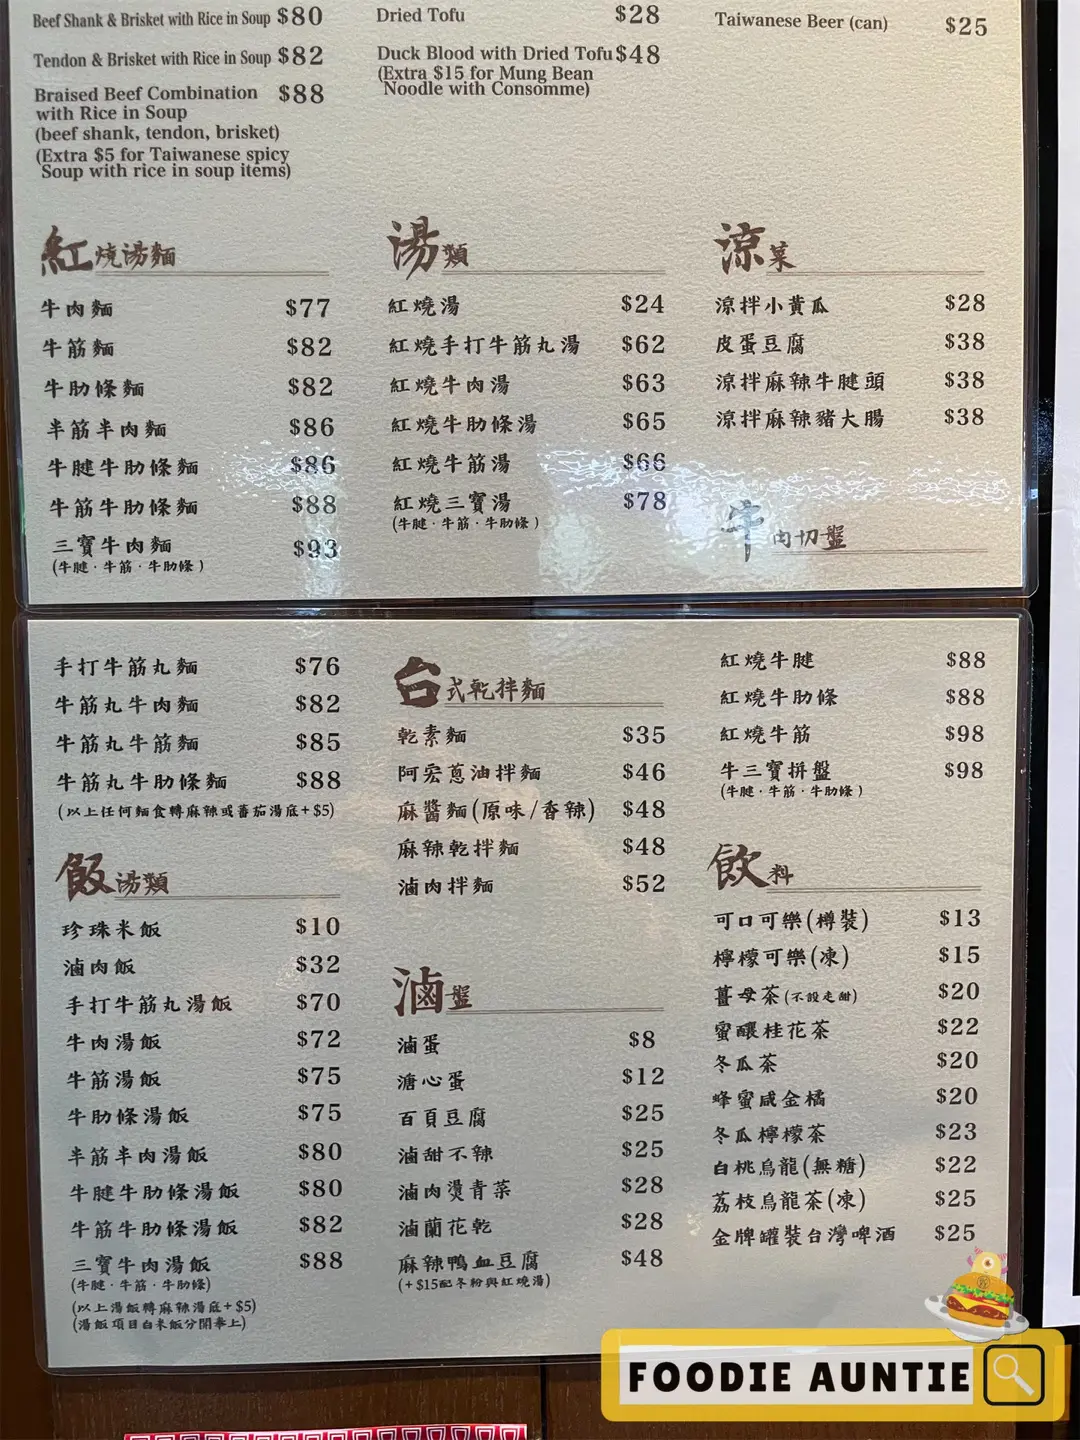 Beef Shank & Brisket with Rice in Soup $80
Tendon & Brisket with Rice in Soup $82
Braised Beef Combination $88
with Rice in Soup
(beef shank, tendon, brisket)
(Extra $5 for Taiwanese spicy
Soup with rice in soup items)
Dried Tofu $28
Duck Blood with Dried Tofu $48
(Extra $15 for Mung Bean
Noodle with Consomme)
Taiwanese Beer (can) $25
紅燒湯麵
牛肉麵 $77
牛筋麵 $82
牛肋條麵 $82
半筋半肉麵 $86
牛腱牛肋條麵 $86
牛筋牛肋條麵 $88
三寶牛肉麵 $93
(牛腱·牛筋·牛肋條)
湯類
紅燒湯 $24
紅燒手打牛筋丸湯 $62
紅燒牛肉湯 $63
紅燒牛肋條湯 $65
紅燒牛筋湯 $66
紅燒三寶湯 $78
(牛腱·牛筋·牛肋條)
涼菜
涼拌小黃瓜 $28
皮蛋豆腐 $38
涼拌麻辣牛腱頭 $38
涼拌麻辣豬大腸 $38
牛肉切盤
手打牛筋丸麵 $76
牛筋丸牛肉麵 $82
牛筋丸牛筋麵 $85
牛筋丸牛肋條麵 $88
(以上任何麵食轉麻辣或蕃茄湯底+$5)
飯湯類
珍珠米飯 $10
滷肉飯 $32
手打牛筋丸湯飯 $70
牛肉湯飯 $72
牛筋湯飯 $75
牛肋條湯飯 $75
半筋半肉湯飯 $80
牛腱牛肋條湯飯 $80
牛筋牛肋條湯飯 $82
三寶牛肉湯飯 $88
(牛腱·牛筋·牛肋條)
(以上湯飯轉麻辣湯底+$5)
(湯飯項目白米飯分開奉上)
台式乾拌麵
乾素麵 $35
阿宏蔥油拌麵 $46
麻醬麵(原味/香辣) $48
麻辣乾拌麵 $48
滷肉拌麵 $52
滷盤
滷蛋 $8
溏心蛋 $12
百頁豆腐 $25
滷甜不辣 $25
滷肉燙青菜 $28
滷蘭花乾 $28
麻辣鴨血豆腐 $48
(+$15配冬粉與紅燒湯)
紅燒牛腱 $88
紅燒牛肋條 $88
紅燒牛筋 $98
牛三寶拼盤 $98
(牛腱·牛筋·牛肋條)
飲料
可口可樂(樽裝) $13
檸檬可樂(凍) $15
薑母茶(不設走甜) $20
蜜釀桂花茶 $22
冬瓜茶 $20
蜂蜜咸金橘 $20
冬瓜檸檬茶 $23
白桃烏龍(無糖) $22
荔枝烏龍茶(凍) $25
金牌罐裝台灣啤酒 $25
FOODIE AUNTIE